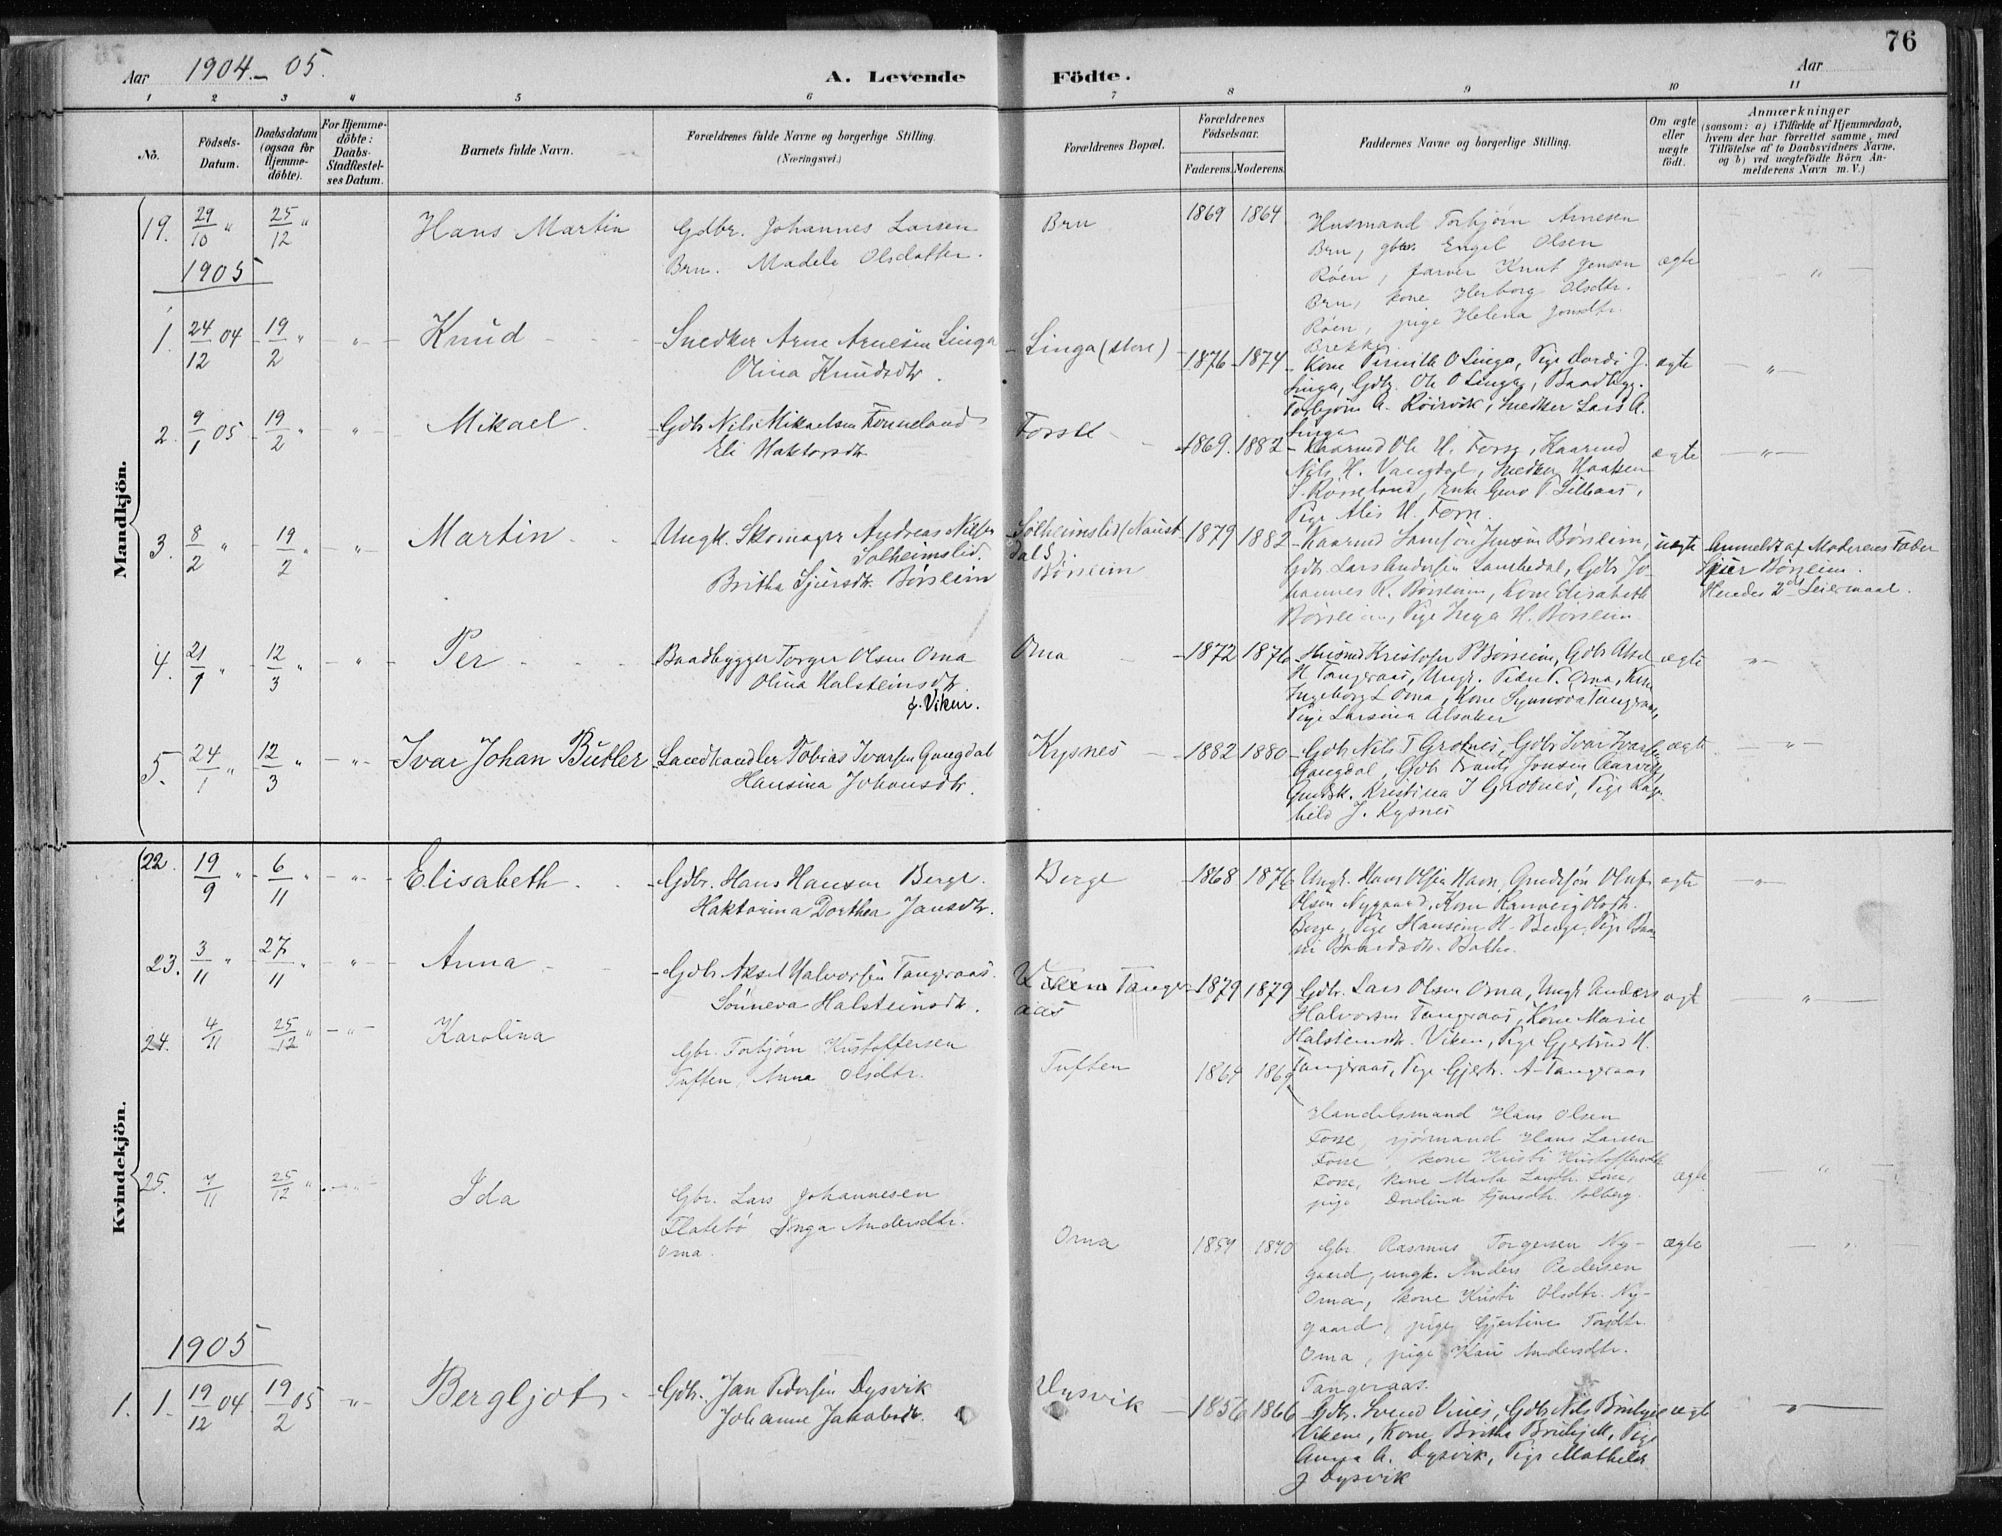 76
Aar 1904-05.
A. Levende Födte.
Aar
1 2 3 4 5 6 7 8 9 10 11
No.
Födsels-
Datum.
Daabsdatum
(ogsaa for
Hjemme-
döbte).
For Hjemme-
döbte:
Daabs-
Stadfæstel-
ses Datum.
Barnets fulde Navn.
Forældrenes fulde Navne og borgerlige Stilling.
(Næringsvei.)
Forældrenes Bopæl.
Forældrenes
Födselsaar.
Faderens. Moderens.
Faddernes Navne og borgerlige Stilling.
Om ægte
eller
uægte
födt.
Anmærkninger
(saasom: a) i Tilfælde af Hjemmedaab,
hvem der har forrettet samme, med
Tilföielse af to Daabsvidners Navne,
og b) ved uægtefödte Börn An-
melderens Navn m. V.)
Mandkjön.
19. 29/10 " 25/12 " Hans Martin
Gdbr. Johannes Larsen
Bru. Madele Olsdatter.
Bru 1869 1864
Husmand Torbjörn Arnesen
Bru, gbr. Engel Olsen
Röen, farver Knut Jensen
Bru, kone Herborg Olsdtr.
Röen, pige Helena Jonsdtr.
Brekke.
ægte "
1905
1. 24/12 04 19/2 " " Knud
Snedker Arne Arnesen Linga
Olina Knudsdtr.
Linga (store) 1876 1874
Kone Pernille O Linga, Pige Dordi J.
Linga, Gdbr. Ole O Linga, Baadbygg.
Torbjörn A. Röirvik, Snedker Lars A.
Linga
ægte "
2. 9/1 05 19/2 " " Mikael
Gdbr Nils Mikaelsen Tonneland
Eli Haktorsdtr.
Forse 1869. 1882
Kaarmd Ole H. Forse, Kaarmd
Nils H. Vangdal, Snedker Haaken
S. Rösseland, Enke Guro T Lillaas,
Pige Alis H. Forse.
ægte "
3. 8/2 " 19/2 " " Martin
Ungk. Skomager Andreas Nilsen
Solheimslid.
Britha Sjursdtr. Börsheim
Solheimslid (Naust-
dal).
Börsheim
1879 1882
Kaarmd Samson Jensen Börsheim,
Gdbr. Lars Andersen Sandvedal, Gdbr Jo-
hannes R. Börsheim, Kone Elisabeth
Börsheim, Pige Inga H. Börsheim
uægte
Anmeldt af Moderens Fader
Sjur Börsheim.
Hendes 2det Leiermaal.
4. 21/1 " 12/3 " " Per
Baadbygger Torger Olsen Oma
Olina Halsteinsdtr.
f. Viken.
Oma 1872 1876
Husmd Kristofer P Börsheim, Gdbr Aksel
H Tangeraas, Ungk. Peder T. Oma, Kone
Ingeborg L Oma, Kone Synnöva Tangeraas,
Pige Larsina Alsaker
ægte "
5. 24/1 " 12/3 " " Ivar Johan Butler
Landhandler Tobias Ivarsen Gangdal
Hansina Johansdtr.
Kysnes 1882 1880
Gdbr Nils T Grotnes, Gdbr Ivar Ivarsen
Gangdal, Gdbr Frants Jonsen Aarvik
Gmdsk. Kristina J Grotnes, Pige Rag-
hild J. Kysnes
ægte "
Kvindekjön.
22. 19/9 " 6/11 " " Elisabeth
Gdbr. Hans Hansen Berge.
Haktorina Dorthea Jansdtr.
Berge 1868 1876
Ungk. Hans Olsen Havn, Gmdssön Oluf
Olsen Nygaard, Kone Ranveig Olsdtr.
Berge, Pige Hansine H. Berge, Pige
Baardsdtr. Bakke.
ægte "
23. 3/11 " 27/11 " " Anna
Gdbr Aksel Halvorsen Tangeraas.
Sönneva Halsteinsdtr.
Tanger-
aas
1879 1879
Gdbr. Lars Olsen Oma, Ungk Anders
Halvorsen Tangeraas, Kone Marie
Halsteinsdtr. Viken, Pige Gjertrud H.
Tangeraas, Pige Gjertr. A. Tangeraas
ægte "
24. 4/11 25/12 " " Karolina
Gbr. Torbjörn Kristoffersen
Tuften, Anna Olsdtr.
Tuften 1864 1869
Handelsmand Hans Olsen
Fosse, sjömand Hans Larsen
Fosse, kone Kristi Kristoffersdtr
Fosse, kone Marta Larsdtr. Fosse,
pige Dordina Sjursdtr. Solberg.
ægte "
25. 7/11 25/12 " " Ida
Gbr. Lars Johannesen
Flatebö Inga Andersdtr.
Oma.
Oma 1859 1870
Gbr. Rasmus Torgersen Ny-
gaard, ungk. Anders Pedersen
Oma, kone Kristi Olsdtr. Ny-
gaard, pige Gjertine Torsdtr.
Oma, pige Kari Andersdtr.
Tangeraas.
ægte "
1905
1. 1. 19/12 04 19/2 05 " Bergljot
Gdbr. Jan Pedersen Dysvik
Johanne Jakobsdtr.
Dysvik 1856 1866
Gdbr. Svend Vines, Gdbr Nils
Vikene, Kone Britha, Pige
Anna A. Dysvik, Pige Mathilda
J Dysvik
ægte "